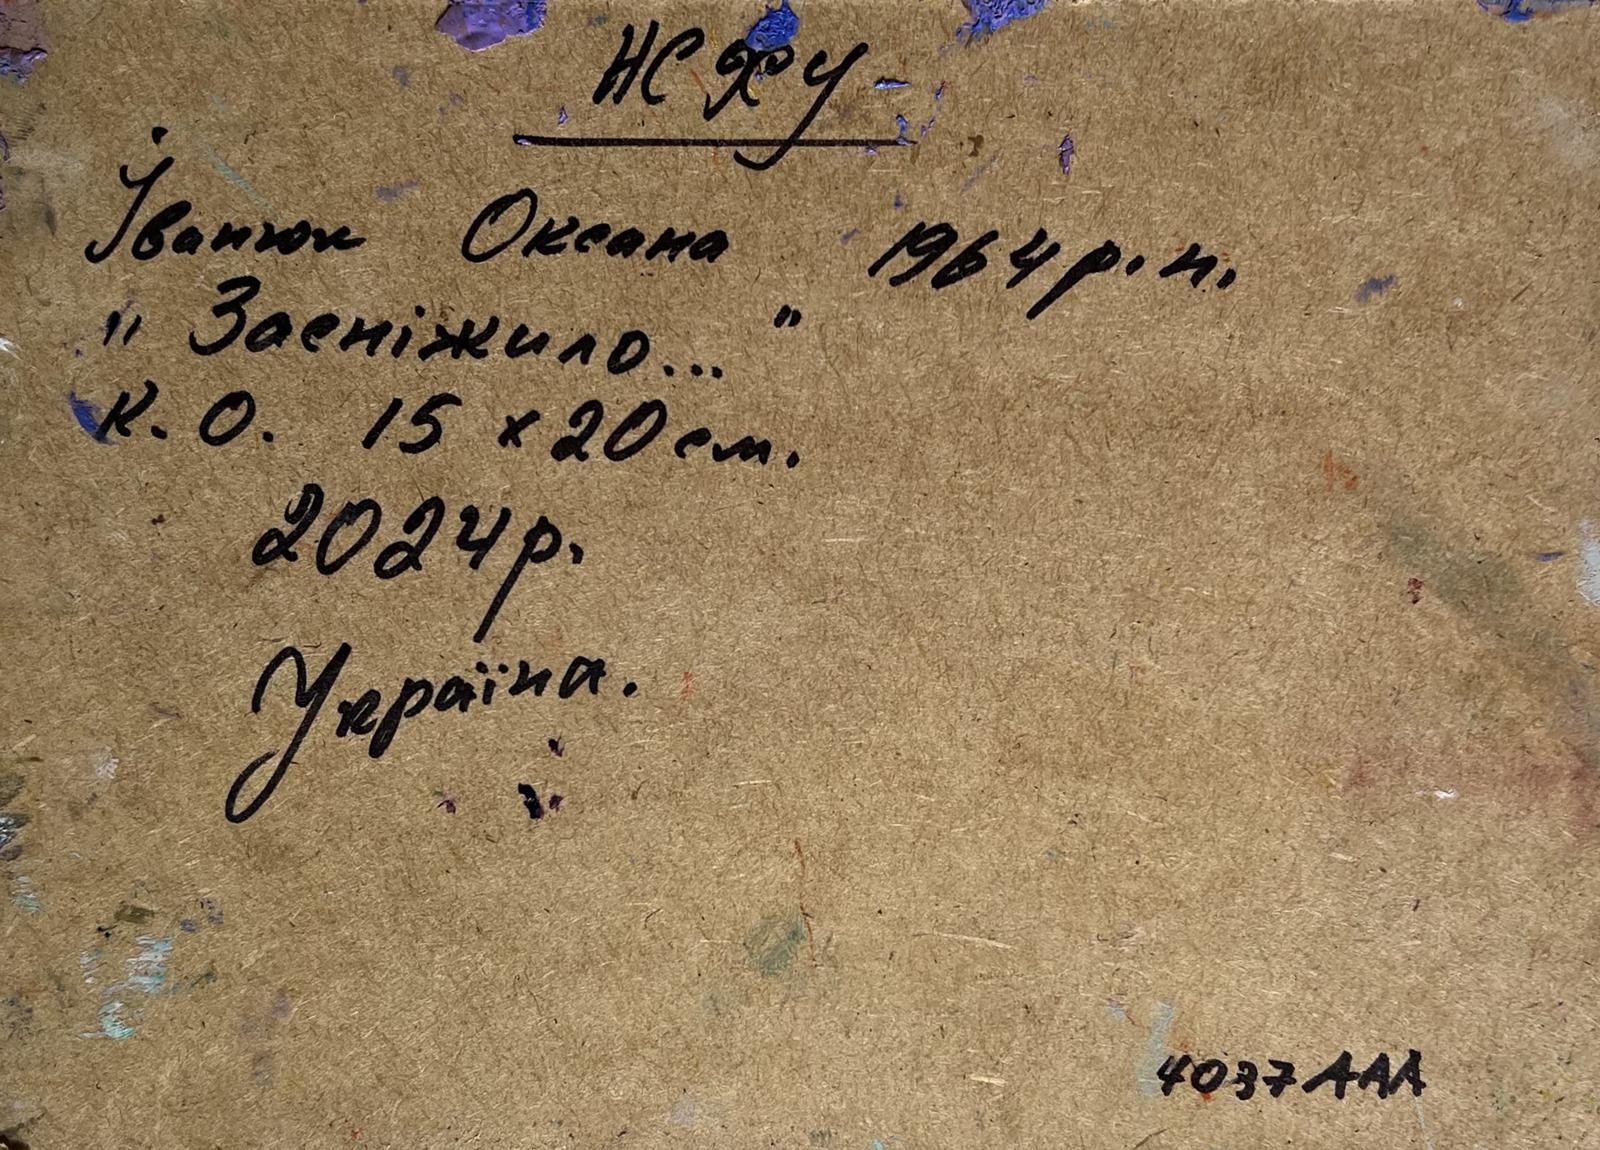 НСХУ
Іванюк Оксана 1964 р. н.
" Засніжило... "
к. о. 15 x 20 см.
2024 р.
Україна.
4037 AAA